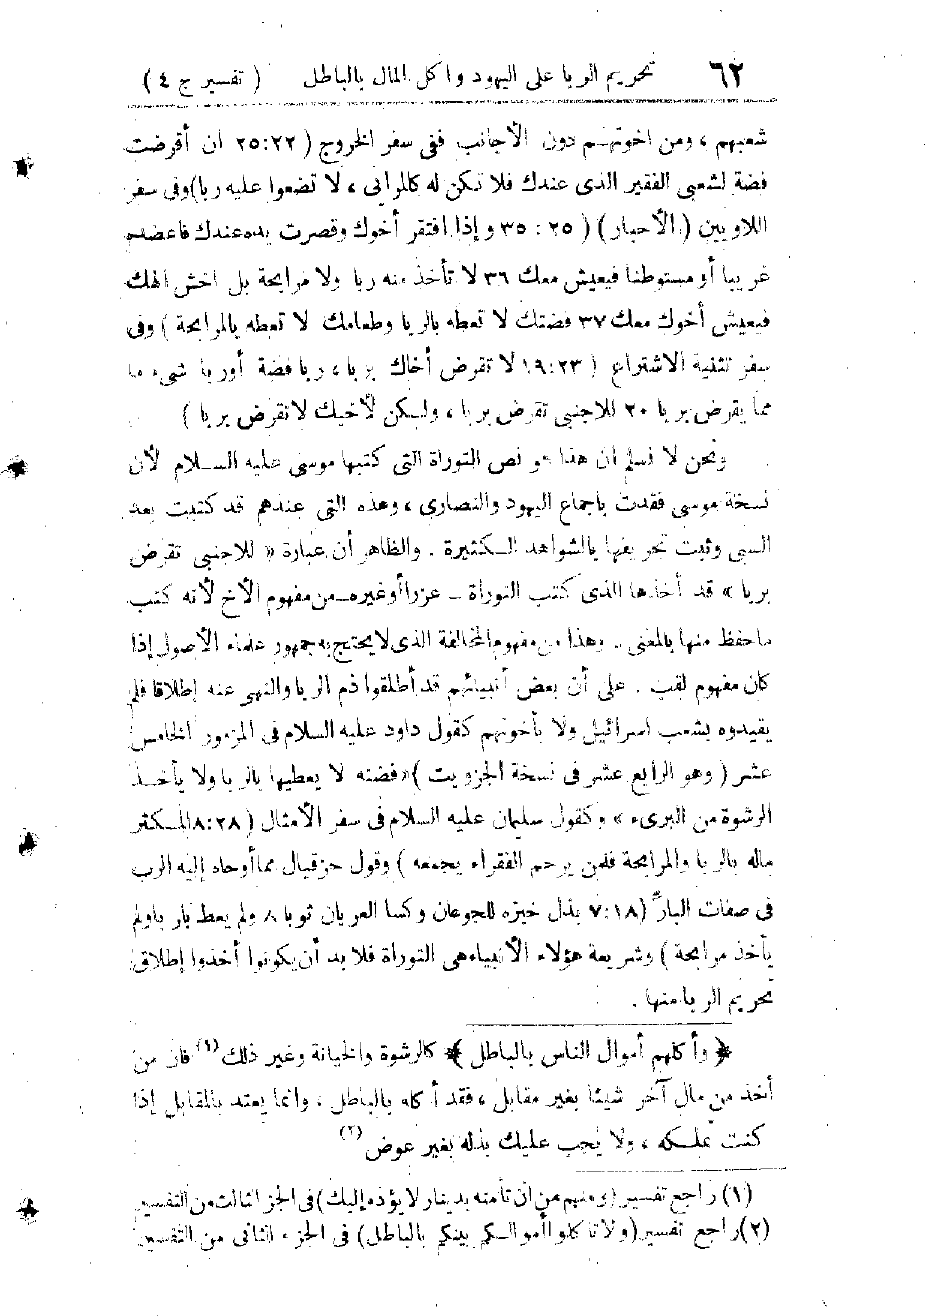 ٦٢ تحريم الربا على اليهود وأكل المال بالباطل ( تفسير ج ٤ )
شعبهم ، ومن اخوتهم دون الأجانب ففي سفر الخروج ( ٢٢:٢٥ ان أقرضت
فضة لشعبى الفقير الذى عندك فلا تكن له كالمرابى ، لا تضعوا عليه ربا)وفى سفر
اللاويين ( الأحبار ) ( ٢٥ : ٣٥ وإذا افتقر أخوك وقصرت يده عندك فاعضده
غريبا أو مستوطنا فيعيش معك ٣٦ لا تأخذ منه ربا ولا مرابحة بل اخش الهك
فيعيش أخوك معك ٣٧ فضتك لا تعطه بالربا وطعامك لا تعطه بالمرابحة ) وفى
سفر تثنية الاشتراع ( ١٩:٢٣ لا تقرض أخاك بربا ، ربا فضة أوربا شىء ما
مما يقرض بربا ٢٠ للاجنبى تقرض بربا ، ولكن لأخيك لاتقرض بربا )
ونحن لا نسلم ان هذا هو نص التوراة التى كتبها موسى عليه السلام لأن
نسخة موسى فقدت باجماع اليهود والنصارى ، وهذه التى عندهم قد كتبت بعد
السبى وثبت تحريفها بالشواهد الكثيرة . والظاهر أن عبارة « للاجنبى تقرض
بربا » قد أخذها الذى كتب التوراة ـ عزرا أوغيره ـ من مفهوم الأخ لأنه كتب
ماحفظ منها بالمعنى . وهذا من مفهوم المخالفة الذى لا يحتج به جمهور علماء الأصول إذا
كان مفهوم لقب . على أن بعض أنبيائهم قد أطلقوا ذم الربا والنهى عنه إطلاقا فلم
يقيدوه بشعب اسرائيل ولا بأخوتهم كقول داود عليه السلام فى المزمور الخامس
عشر ( وهو الرابع عشر فى نسخة الجزويت ) « فضته لا يعطيها بالربا ولا يأخذ
الرشوة من البرىء » وكقول سليمان عليه السلام فى سفر الأمثال ( ٨:٢٨ المكثر
ماله بالربا والمرابحة فلمن يرحم الفقراء يجمعه ) وقول حزقيال مما أوحاه إليه الرب
فى صفات البارّ (٧:١٨ بذل خبزه للجوعان وكسا العريان ثوبا ٨ ولم يعط بار باولم
يأخذ مرابحة ) وشريعة هؤلاء الأنبياء هى التوراة فلا بد أن يكونوا أخذوا إطلاق
تحريم الربا منها .
﴿ وأكلهم أموال الناس بالباطل ﴾ كالرشوة والخيانة وغير ذلك (١) فان من
أخذ من مال آخر شيئا بغير مقابل ، فقد أكله بالباطل ، وانما يعتد بالمقابل إذا
كنت تملكه ، ولا يجب عليك بذله بغير عوض (٢)
(١) راجع تفسير (ومنهم من ان تأمنه بدينار لا يؤده إليك) فى الجز الثالث من التفسير
(٢) راجع تفسير (ولا تاكلوا أموالكم بينكم بالباطل) فى الجزء الثانى من التفسير